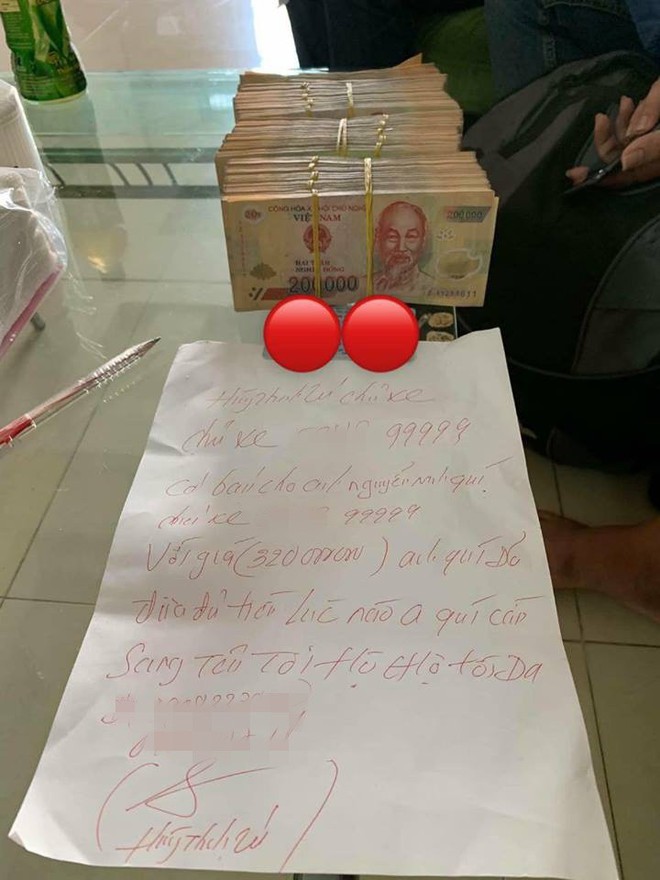 CỘNG HÒA XÃ HỘI CHỦ NGHĨA
VIỆT NAM
200000
HAI TRĂM
NGHÌN ĐỒNG
200000
chủ xe
chủ xe 99999
có bán cho anh nguyễn minh quí
chiếc xe 99999
Với giá (320 000 000) anh quí Đã
đưa đủ tiền lúc nào a quí cần
Sang tên Tôi hỗ trợ tối Đa